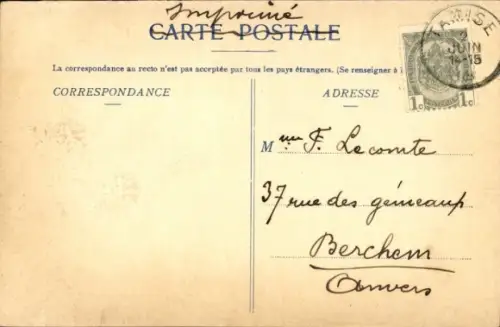 Imprimé
CARTE POSTALE
La correspondance au recto n'est pas acceptée par tous les pays étrangers. (Se renseigner à
CORRESPONDANCE
ADRESSE
TAMISE
JUIN
1c 1c
Mme F. Lecomte
37 rue des gémeaux
Berchem
Anvers